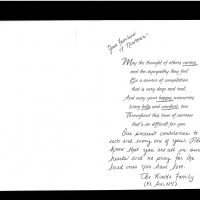 Dear Families
of Newtown -
May the thought of others caring
and the sympathy they feel
Be a source of consolation
that is very deep and real,
And may your happy memories
bring help and comfort, too,
Throughout this time of sorrow
that's so difficult for you.
Our sincerest condolences to
each and every one of you. Please
know that you are all in our
hearts and we pray for the
loved ones you have lost.
The Family